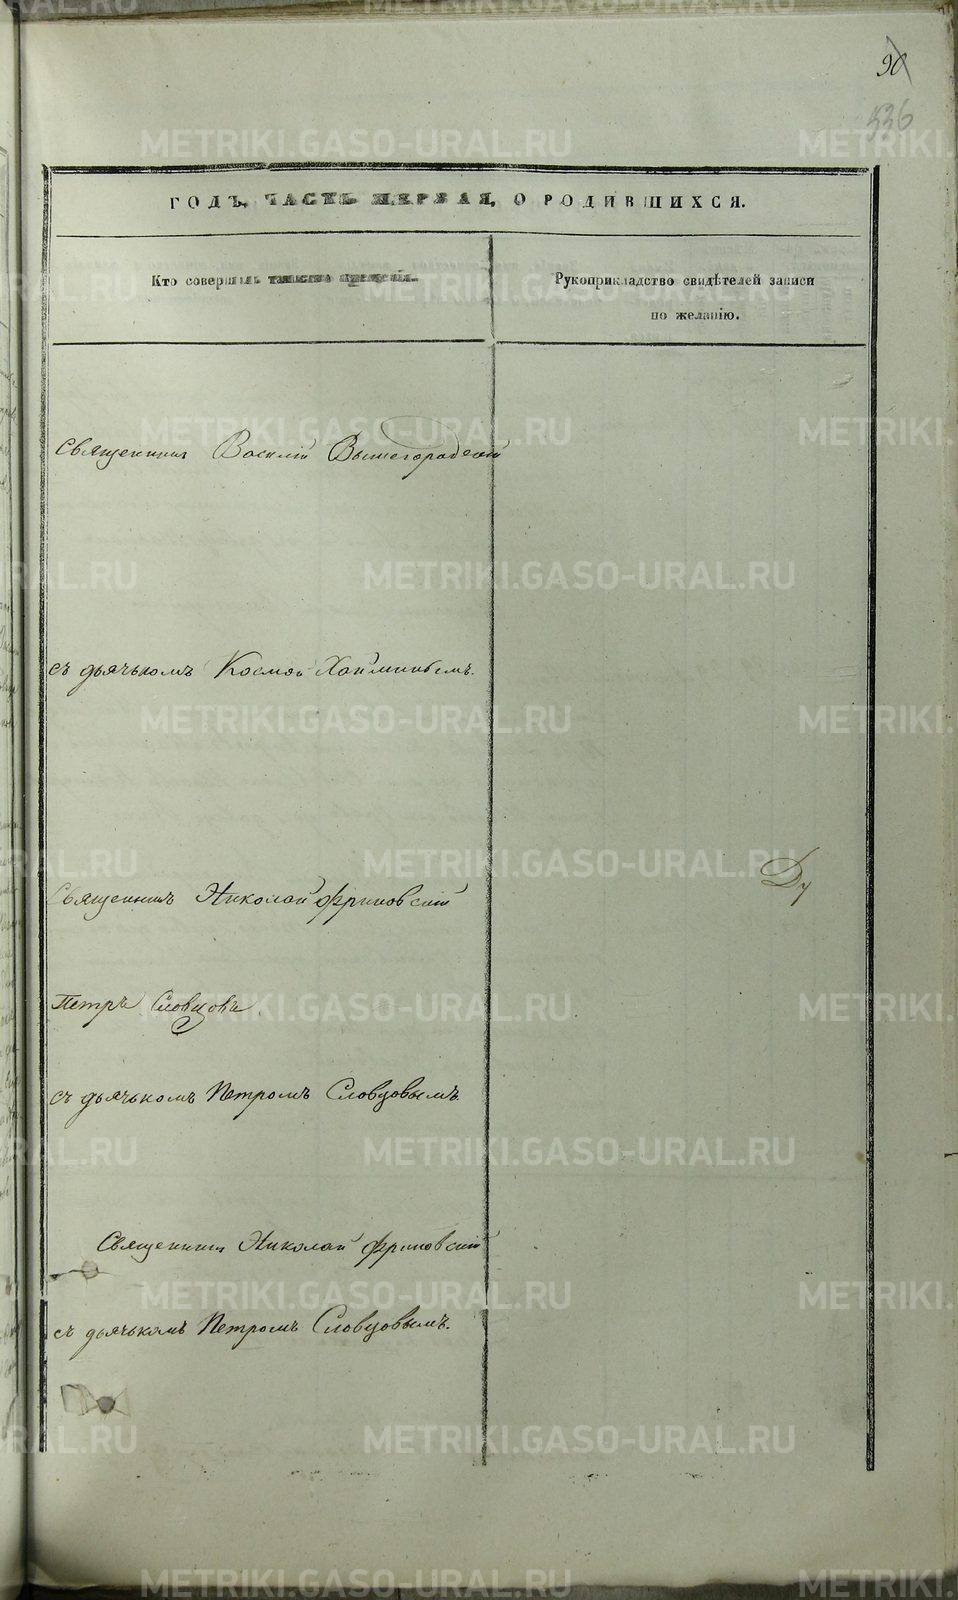 90
536
ГОДЪ, ЧАСТЬ ПЕРВАЯ, О РОДИВШИХСЯ.
Кто совершалъ таинство крещенія.
Рукоприкладство свидѣтелей записи
по желанію.
Священникъ Василій Вышегородскій
съ дьячькомъ Космой
Священникъ Николай Фриновскій
Ду
Петръ Словцовъ.
съ дьячькомъ Петромъ Словцовымъ.
Священникъ Николай Фриновскій
съ дьячькомъ Петромъ Словцовымъ.
METRIKI.GASO-URAL.RU